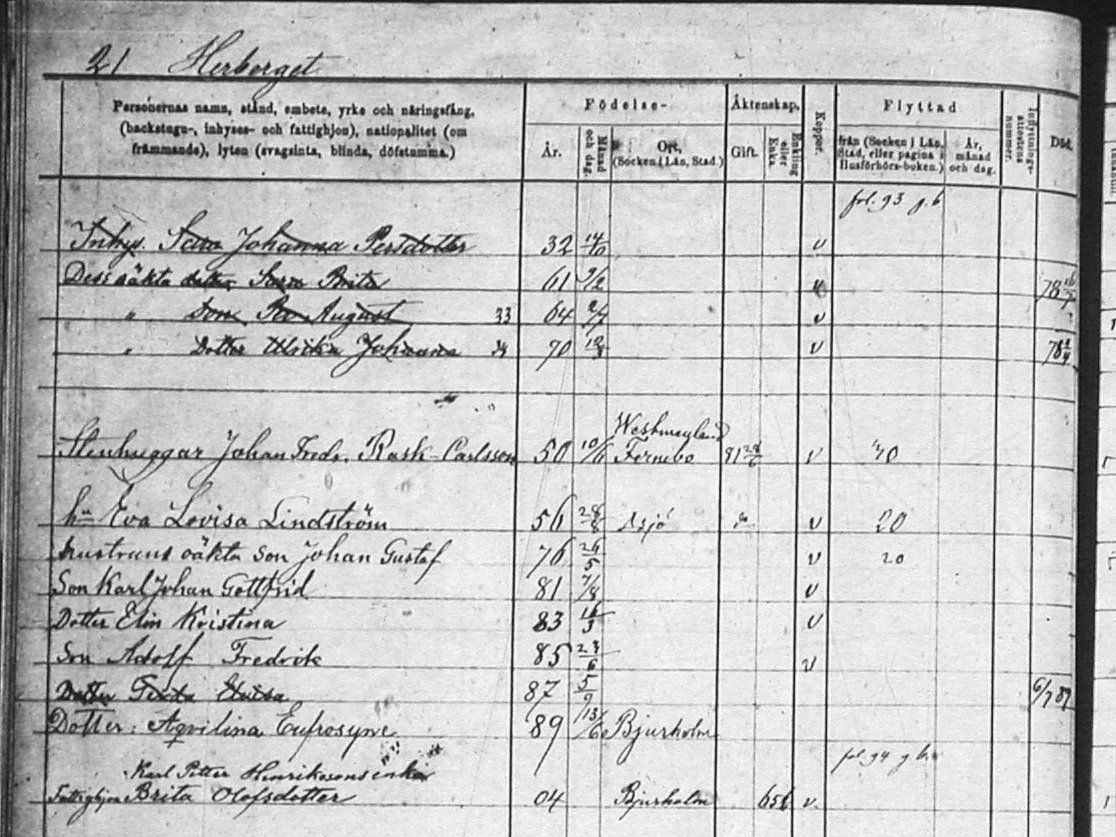 21 Herberget
Personernas namn, stånd, embete, yrke och näringsfång,
(backstugu-, inhyses- och fattighjon), nationalitet (om
främmande), lyten (svagsinta, blinda, döfstumma.)
Födelse-
År.
Månad och dag.
Ort.
(Socken i Län, Stad.)
Äktenskap.
Gift.
Enkling eller Enka.
Koppor.
Flyttad
från (Socken i Län,
Stad, eller pagina i
Husförhörs-boken.)
År,
månad
och dag.
Inflyttnings-
attestens
nummer.
Död.
fol. 93 g. b
Inhys. Sara Johanna Persdotter 32 14/10 v
Dess oäkta dotter Sara Brita 61 2/2 v 78 16/7
" Son Per August 33 64 2/7 v
" Dotter Ulrika Johanna 70 v 78
Westmanland
Stenhuggar Johan Fredr. Rask-Carlsson 50 10/6 Fernebo 81 28/6 v 40
hu Eva Lovisa Lindström 56 28/8 Åsjö do v 20
hustruns oäkta son Johan Gustaf 76 26/5 v 20
Son Karl Johan Gottfrid 81 7/8 v
Dotter Elin Kristina 83 16/3 v
Son Adolf Fredrik 85 23/6 v
Dotter 87 5/9 6/7 89
Dotter: Aqvilina Eufrosyne 89 13/6 Bjurholm
fol. 94 g b.
Karl Petter Henrikssons enka
Fattighjon Brita Olofsdotter 04 Bjurholm 65 v